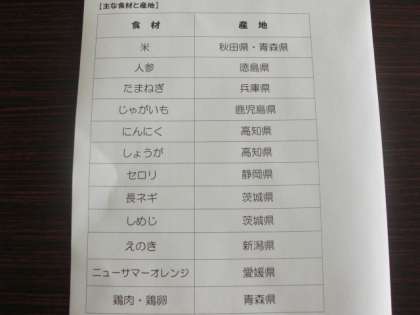 【主な食材と産地】
食材 産地
米 秋田県・青森県
人参 徳島県
たまねぎ 兵庫県
じゃがいも 鹿児島県
にんにく 高知県
しょうが 高知県
セロリ 静岡県
長ネギ 茨城県
しめじ 茨城県
えのき 新潟県
ニューサマーオレンジ 愛媛県
鶏肉・鶏卵 青森県